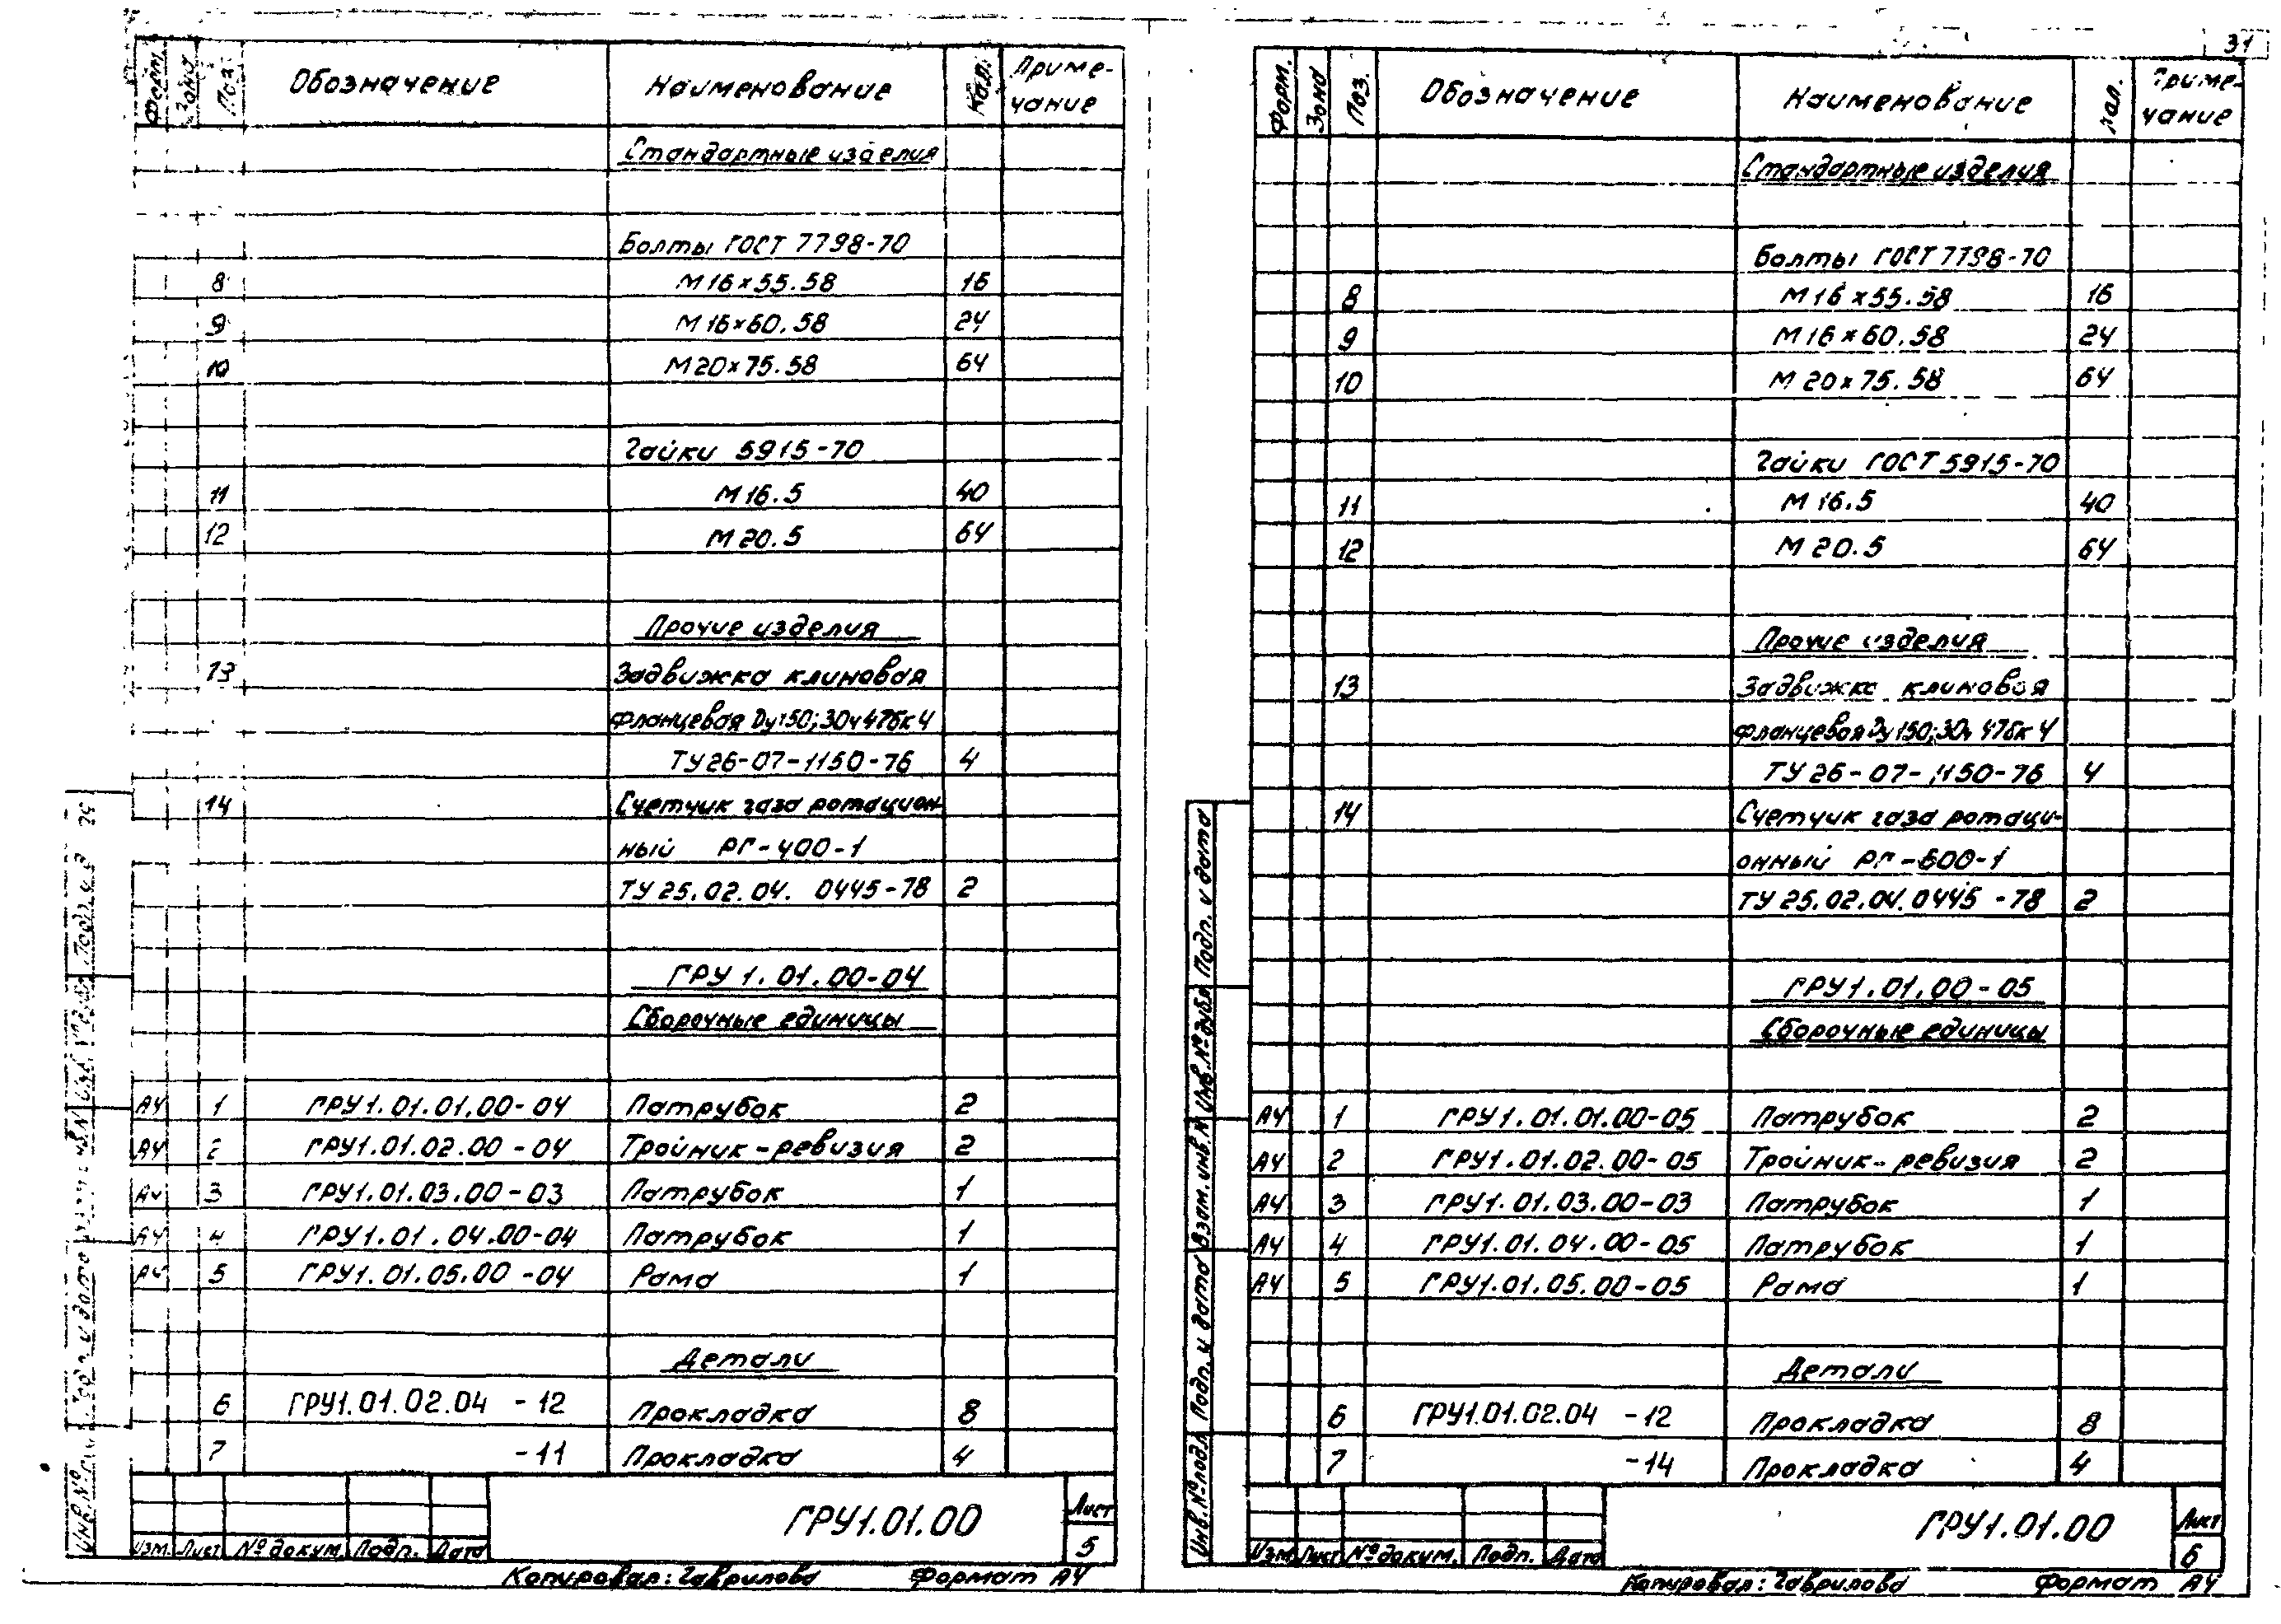 31
Форм. Зона Поз. Обозначение Наименование Кол. Приме-
чание
Стандартные изделия
Болты ГОСТ 7798-70
8 М16×55.58 16
9 М16×60.58 24
10 М20×75.58 64
Гайки 5915-70
11 М16.5 40
12 М20.5 64
Прочие изделия
13 Задвижка клиновая
фланцевая Dу150;30ч47бк4
ТУ26-07-1150-76 4
14 Счетчик газа ротацион-
ный РГ-400-1
ТУ25.02.04. 0445-78 2
ГРУ 1.01.00-04
Сборочные единицы
А4 1 ГРУ1.01.01.00-04 Патрубок 2
А4 2 ГРУ1.01.02.00-04 Тройник-ревизия 2
А4 3 ГРУ1.01.03.00-03 Патрубок 1
А4 4 ГРУ1.01.04.00-04 Патрубок 1
А4 5 ГРУ1.01.05.00-04 Рама 1
Детали
6 ГРУ1.01.02.04 -12 Прокладка 8
7 -11 Прокладка 4
Изм. Лист № докум. Подп. Дата
ГРУ1.01.00
Лист
5
Копировал: Гаврилова Формат А4
Форм. Зона Поз. Обозначение Наименование Кол. Приме-
чание
Стандартные изделия
Болты ГОСТ 7798-70
8 М16×55.58 16
9 М16×60.58 24
10 М20×75.58 64
Гайки ГОСТ 5915-70
11 М16.5 40
12 М20.5 64
Прочие изделия
13 Задвижка клиновая
фланцевая Dу150;30ч47бк4
ТУ26-07-1150-76 4
14 Счетчик газа ротаци-
онный РГ-600-1
ТУ25.02.04.0445-78 2
ГРУ1.01.00-05
Сборочные единицы
А4 1 ГРУ1.01.01.00-05 Патрубок 2
А4 2 ГРУ1.01.02.00-05 Тройник-ревизия 2
А4 3 ГРУ1.01.03.00-03 Патрубок 1
А4 4 ГРУ1.01.04.00-05 Патрубок 1
А4 5 ГРУ1.01.05.00-05 Рама 1
Детали
6 ГРУ1.01.02.04 -12 Прокладка 8
7 -14 Прокладка 4
Инв.№подл Подп. и дата Взам.инв.№ Инв.№дубл Подп. и дата
Изм Лист № докум. Подп. Дата
ГРУ1.01.00
Лист
6
Копировал: Гаврилова Формат А4